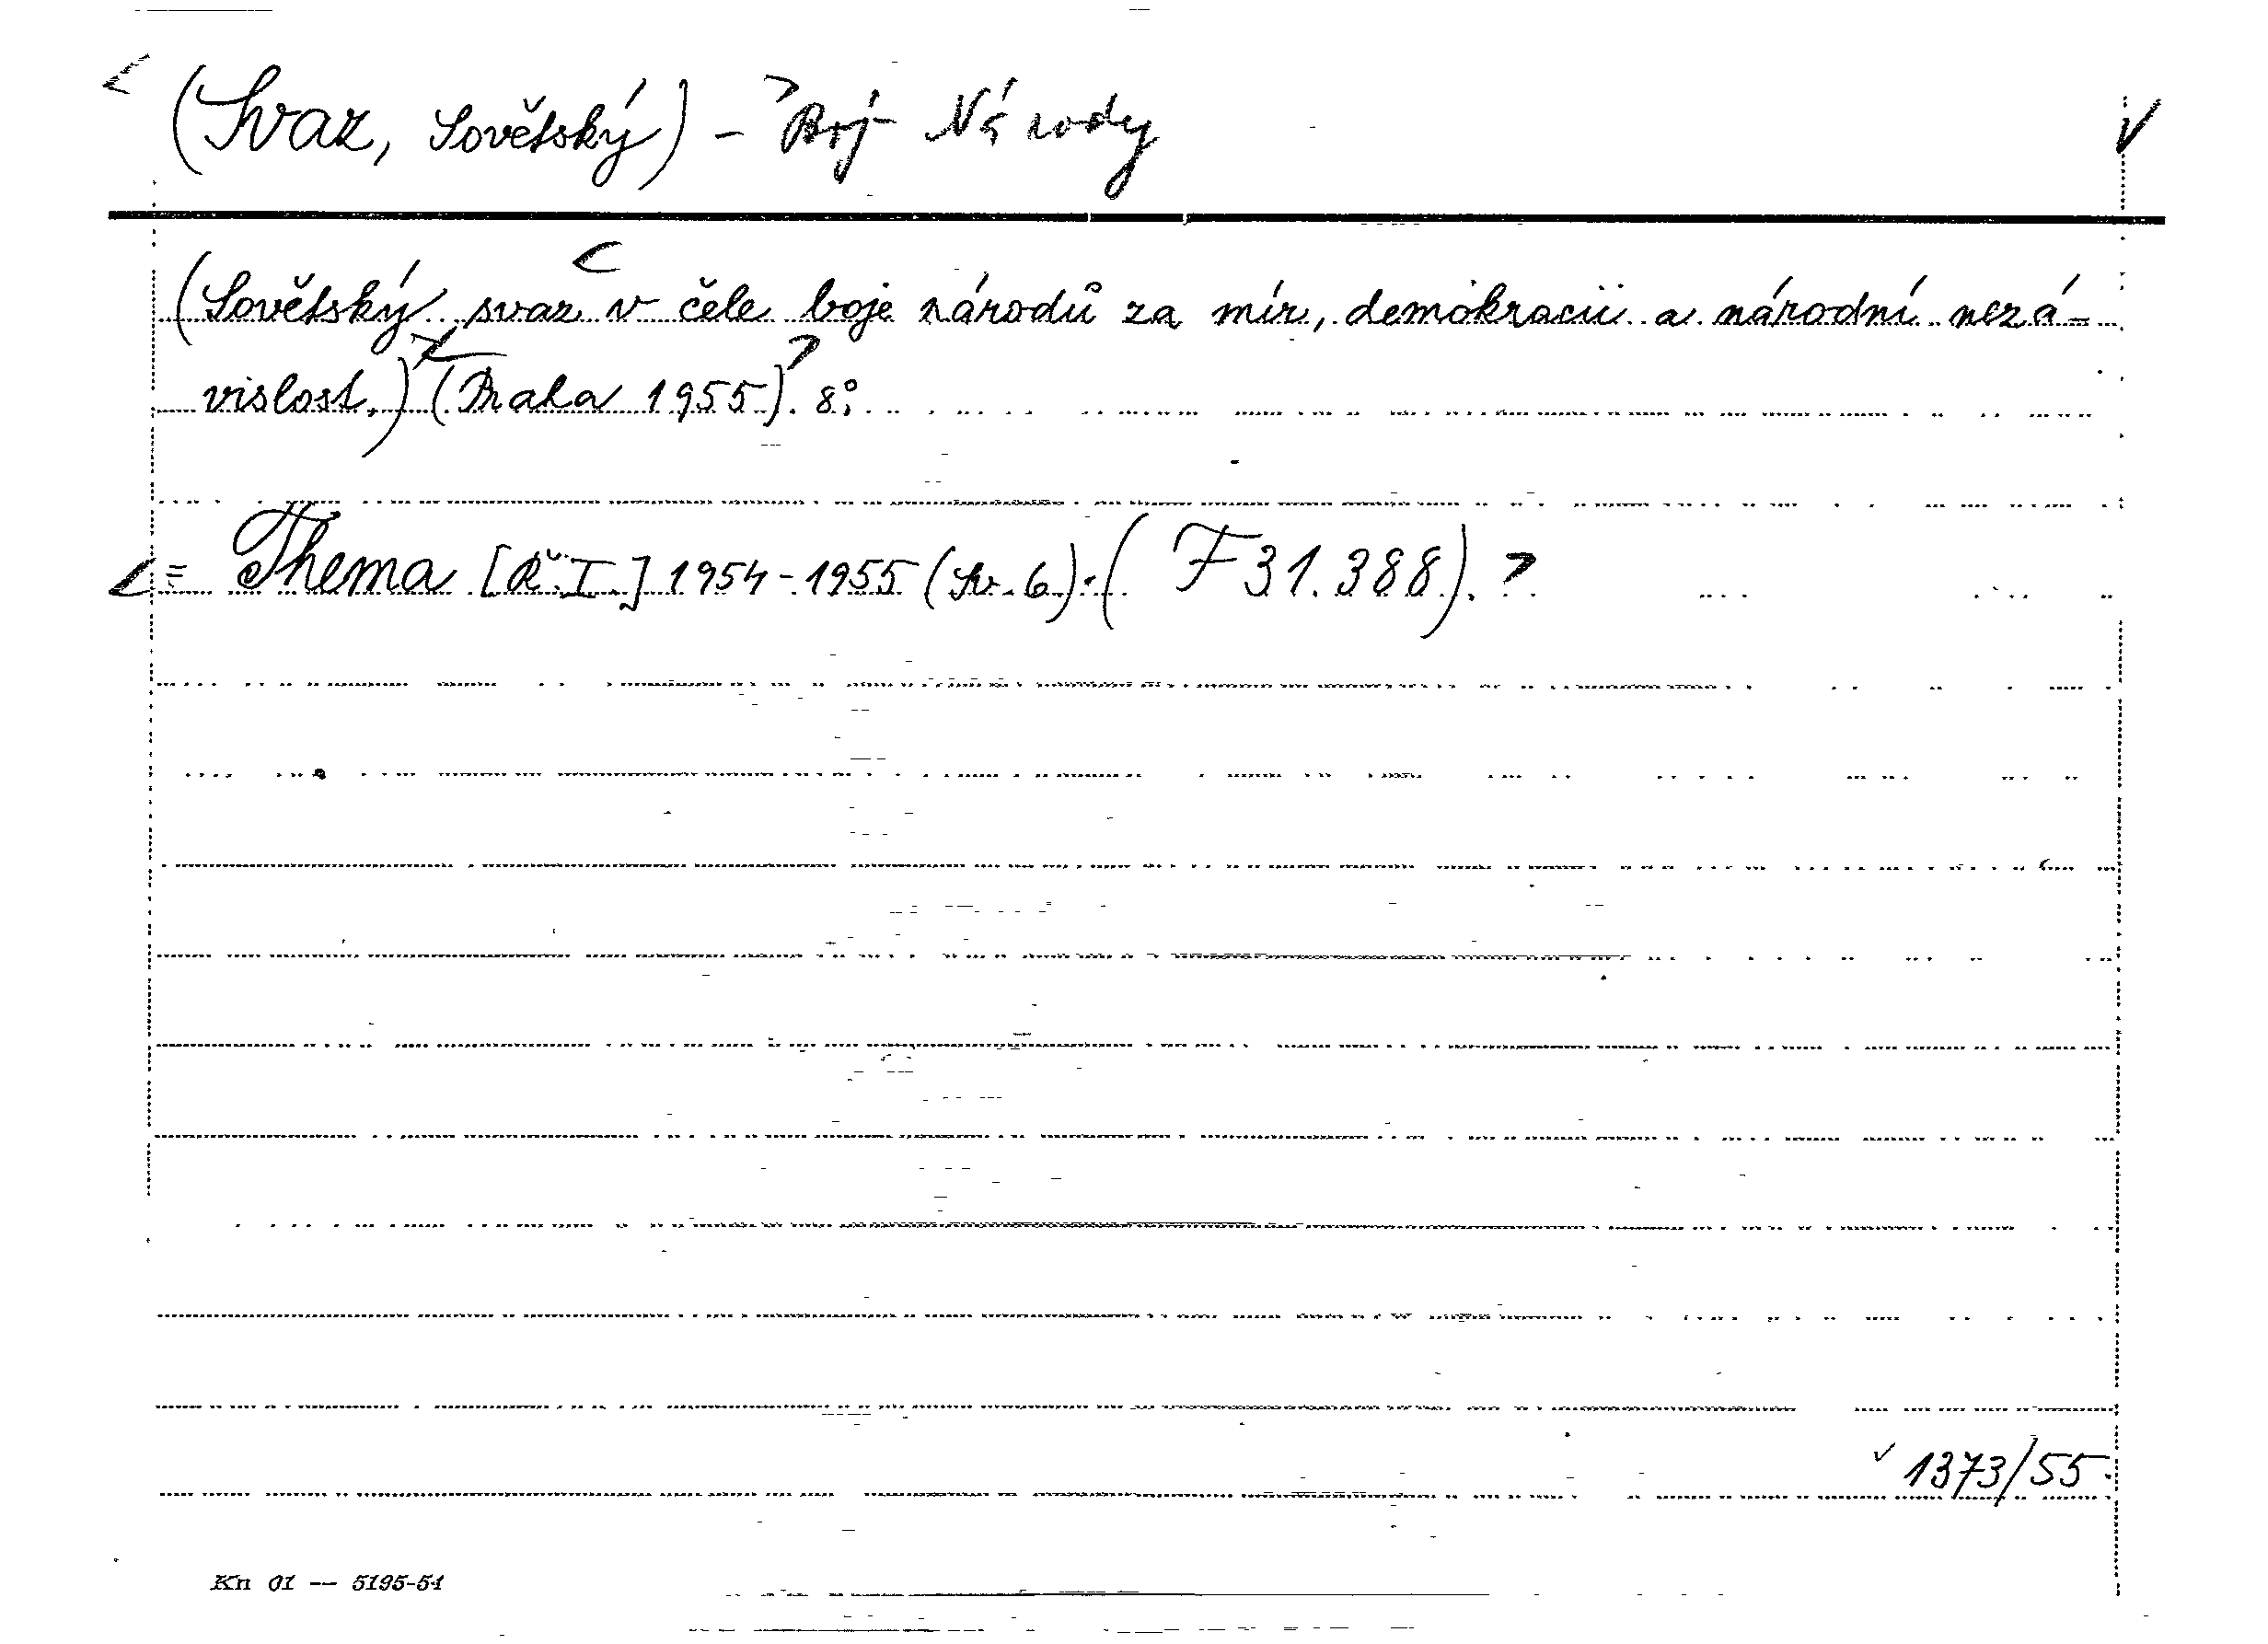 (Svaz, Sovětský) - Boj Národy
(Sovětský svaz v čele boje národů za mír, demokracii a národní nezá-
vislost.) (Praha 1955). 8°.
= Thema [Ř. I.] 1954-1955 (Sv. 6). (F 31.388).
1373/55.
Kn 01 — 5195-54